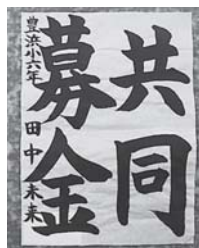 共同
募金
豊浜小六年 田中未来